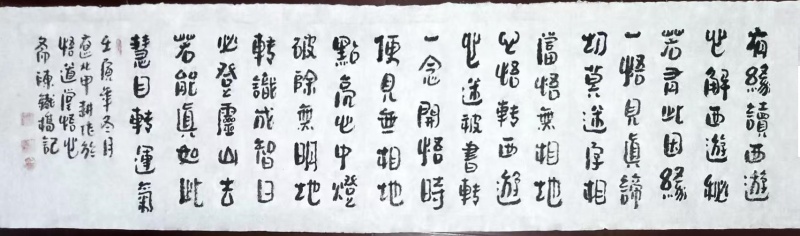 有緣讀西遊
心解西遊秘
若有此因緣
一悟見真諦
切莫迷字相
當悟無相地
心悟轉西遊
心迷被書轉
一念開悟時
便見無相地
點亮心中燈
破除無明地
轉識成智日
必登靈山去
若能真如此
慧目轉運氣
壬寅年冬月
北甲耕作於
悟道堂悟心
齋陳鐵楊記